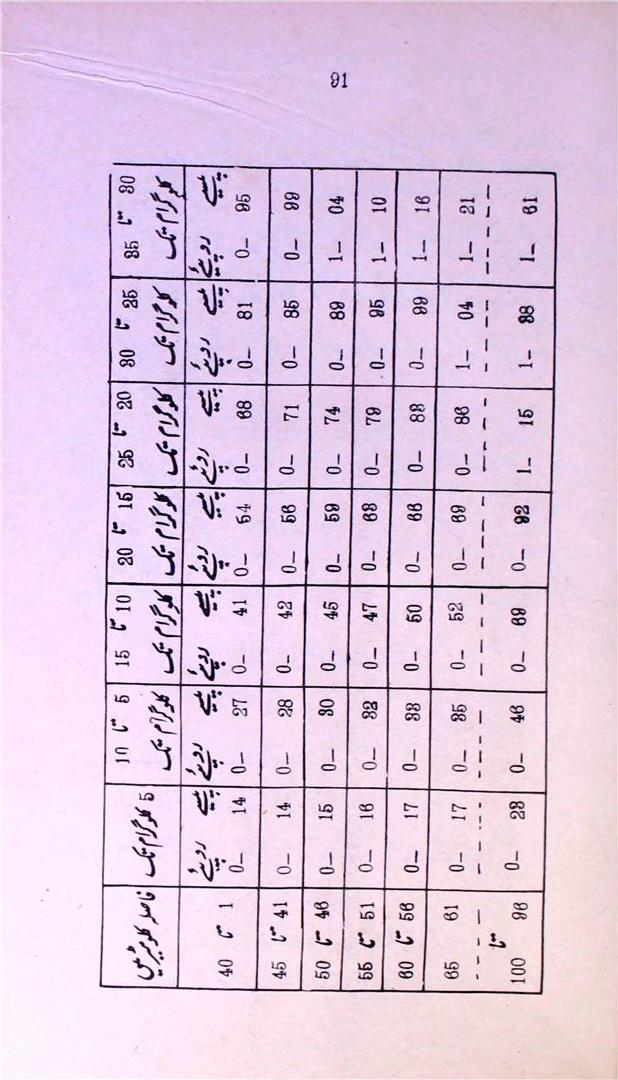 91
فاصلہ کلومیٹر میں 5 کلوگرام تک 5 تا 10 کلوگرام تک 10 تا 15 کلوگرام تک 15 تا 20 کلوگرام تک 20 تا 25 کلوگرام تک 25 تا 30 کلوگرام تک 30 تا 35 کلوگرام تک
پیسے روپئے پیسے روپئے پیسے روپئے پیسے روپئے پیسے روپئے پیسے روپئے پیسے روپئے
1 تا 40 0-14 0-27 0-41 0-54 0-68 0-81 0-95
41 تا 45 0-14 0-28 0-42 0-56 0-71 0-85 0-99
46 تا 50 0-15 0-30 0-45 0-59 0-74 0-89 1-04
51 تا 55 0-16 0-32 0-47 0-63 0-79 0-95 1-10
56 تا 60 0-17 0-33 0-50 0-66 0-83 0-99 1-16
61 65 0-17 0-35 0-52 0-69 0-86 1-04 1-21
96 تا 100 0-23 0-46 0-69 0-92 1-15 1-38 1-61